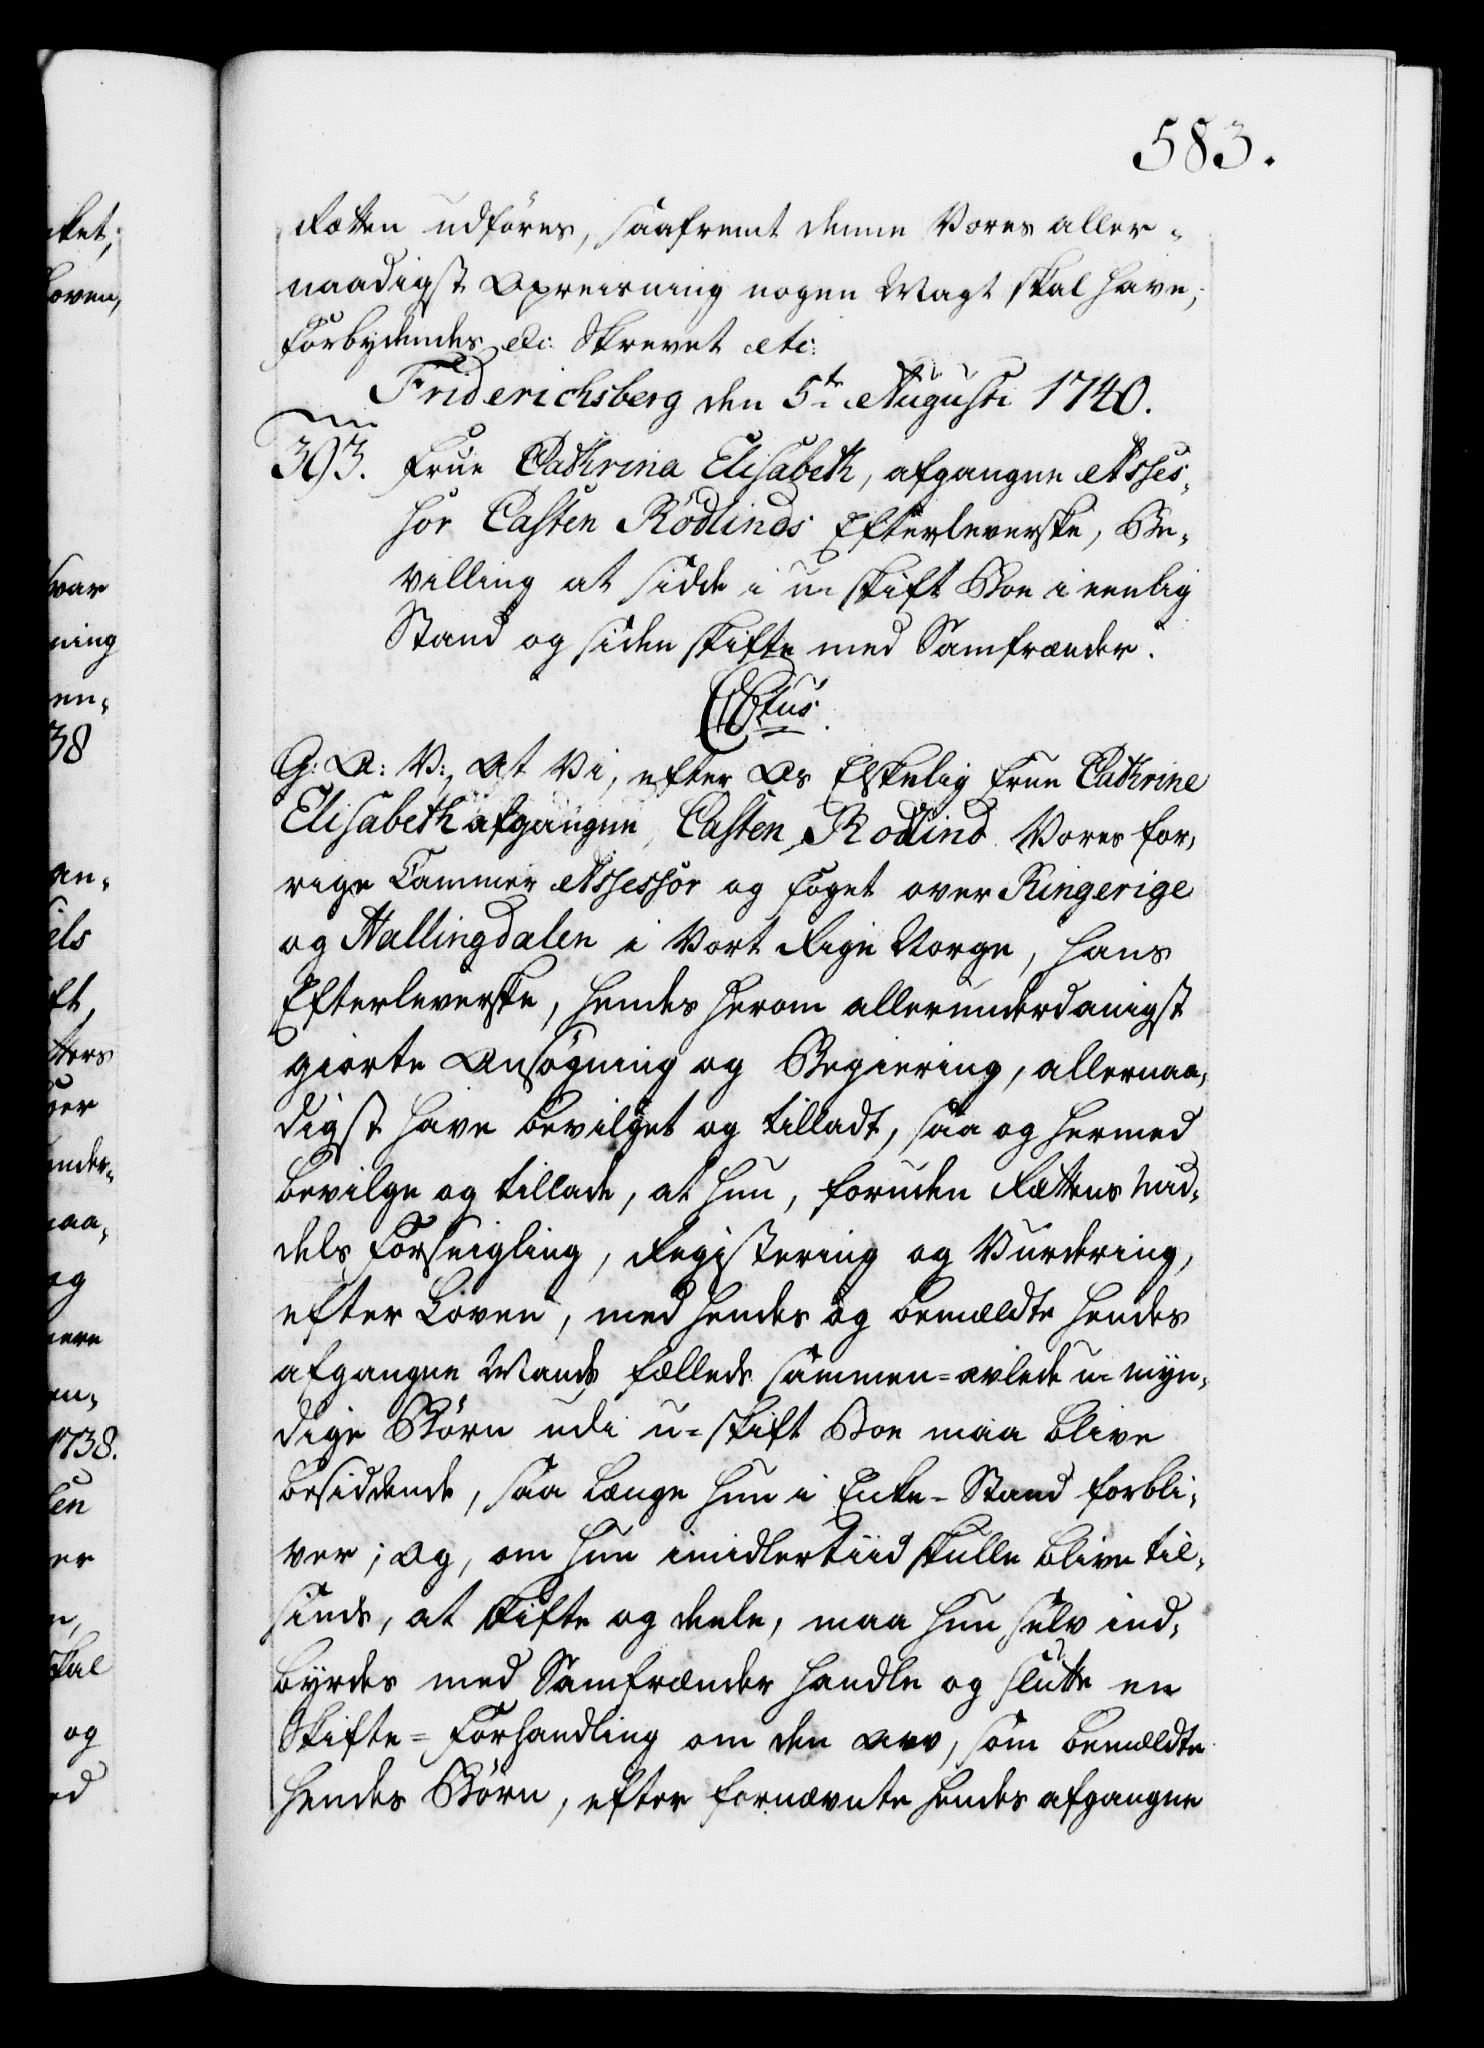 583.
Rætten udføres, saafremt denne Vores aller-
naadigst Opreisning nogen Magt skal have;
Forbydendes etc: Skrevet etc:
Friderichsberg den 5te Augusti 1740.
393. Frue Cathrina Elisabeth, afgangne Asses-
sor Casten Rödlinds Efterleverske, Be-
villing at sidde i u-skift Boe i eenlig
Stand og siden skifte med Samfrænder.
G: A: V:, At Vi, efter Os Elskelig Frue Cathrine
Elisabeth afgangne Casten Rodlind Vores for-
rige Cammer Assessor og Foget over Ringerige
og Hallingdalen i Vort Rige Norge, hans
Efterleverske, hendes herom allerunderdanigst
giorte Ansøgning og Begiering, allernaa-
digst have bevilget og tilladt, saa og hermed
bevilge og tillade, at hun, foruden Rættens Mid-
dels Forseigling, Registering og Vurdering,
efter Loven, med hendes og bemældte hendes
afgangne Mands fælleds sammen-avlede u-myn-
dige Børn udi u-skift Boe maa blive
besiddende, saa længe hun i Enke-Stand forbli-
ver; Og, om hun imidlertiid skulle blive til-
sinds, at skifte og deele, maa hun selv ind-
byrdes med Samfrænder handle og slutte en
Skifte-Forhandling om den Arv, som bemældte
hendes Børn, efter fornævnte hendes afgangne